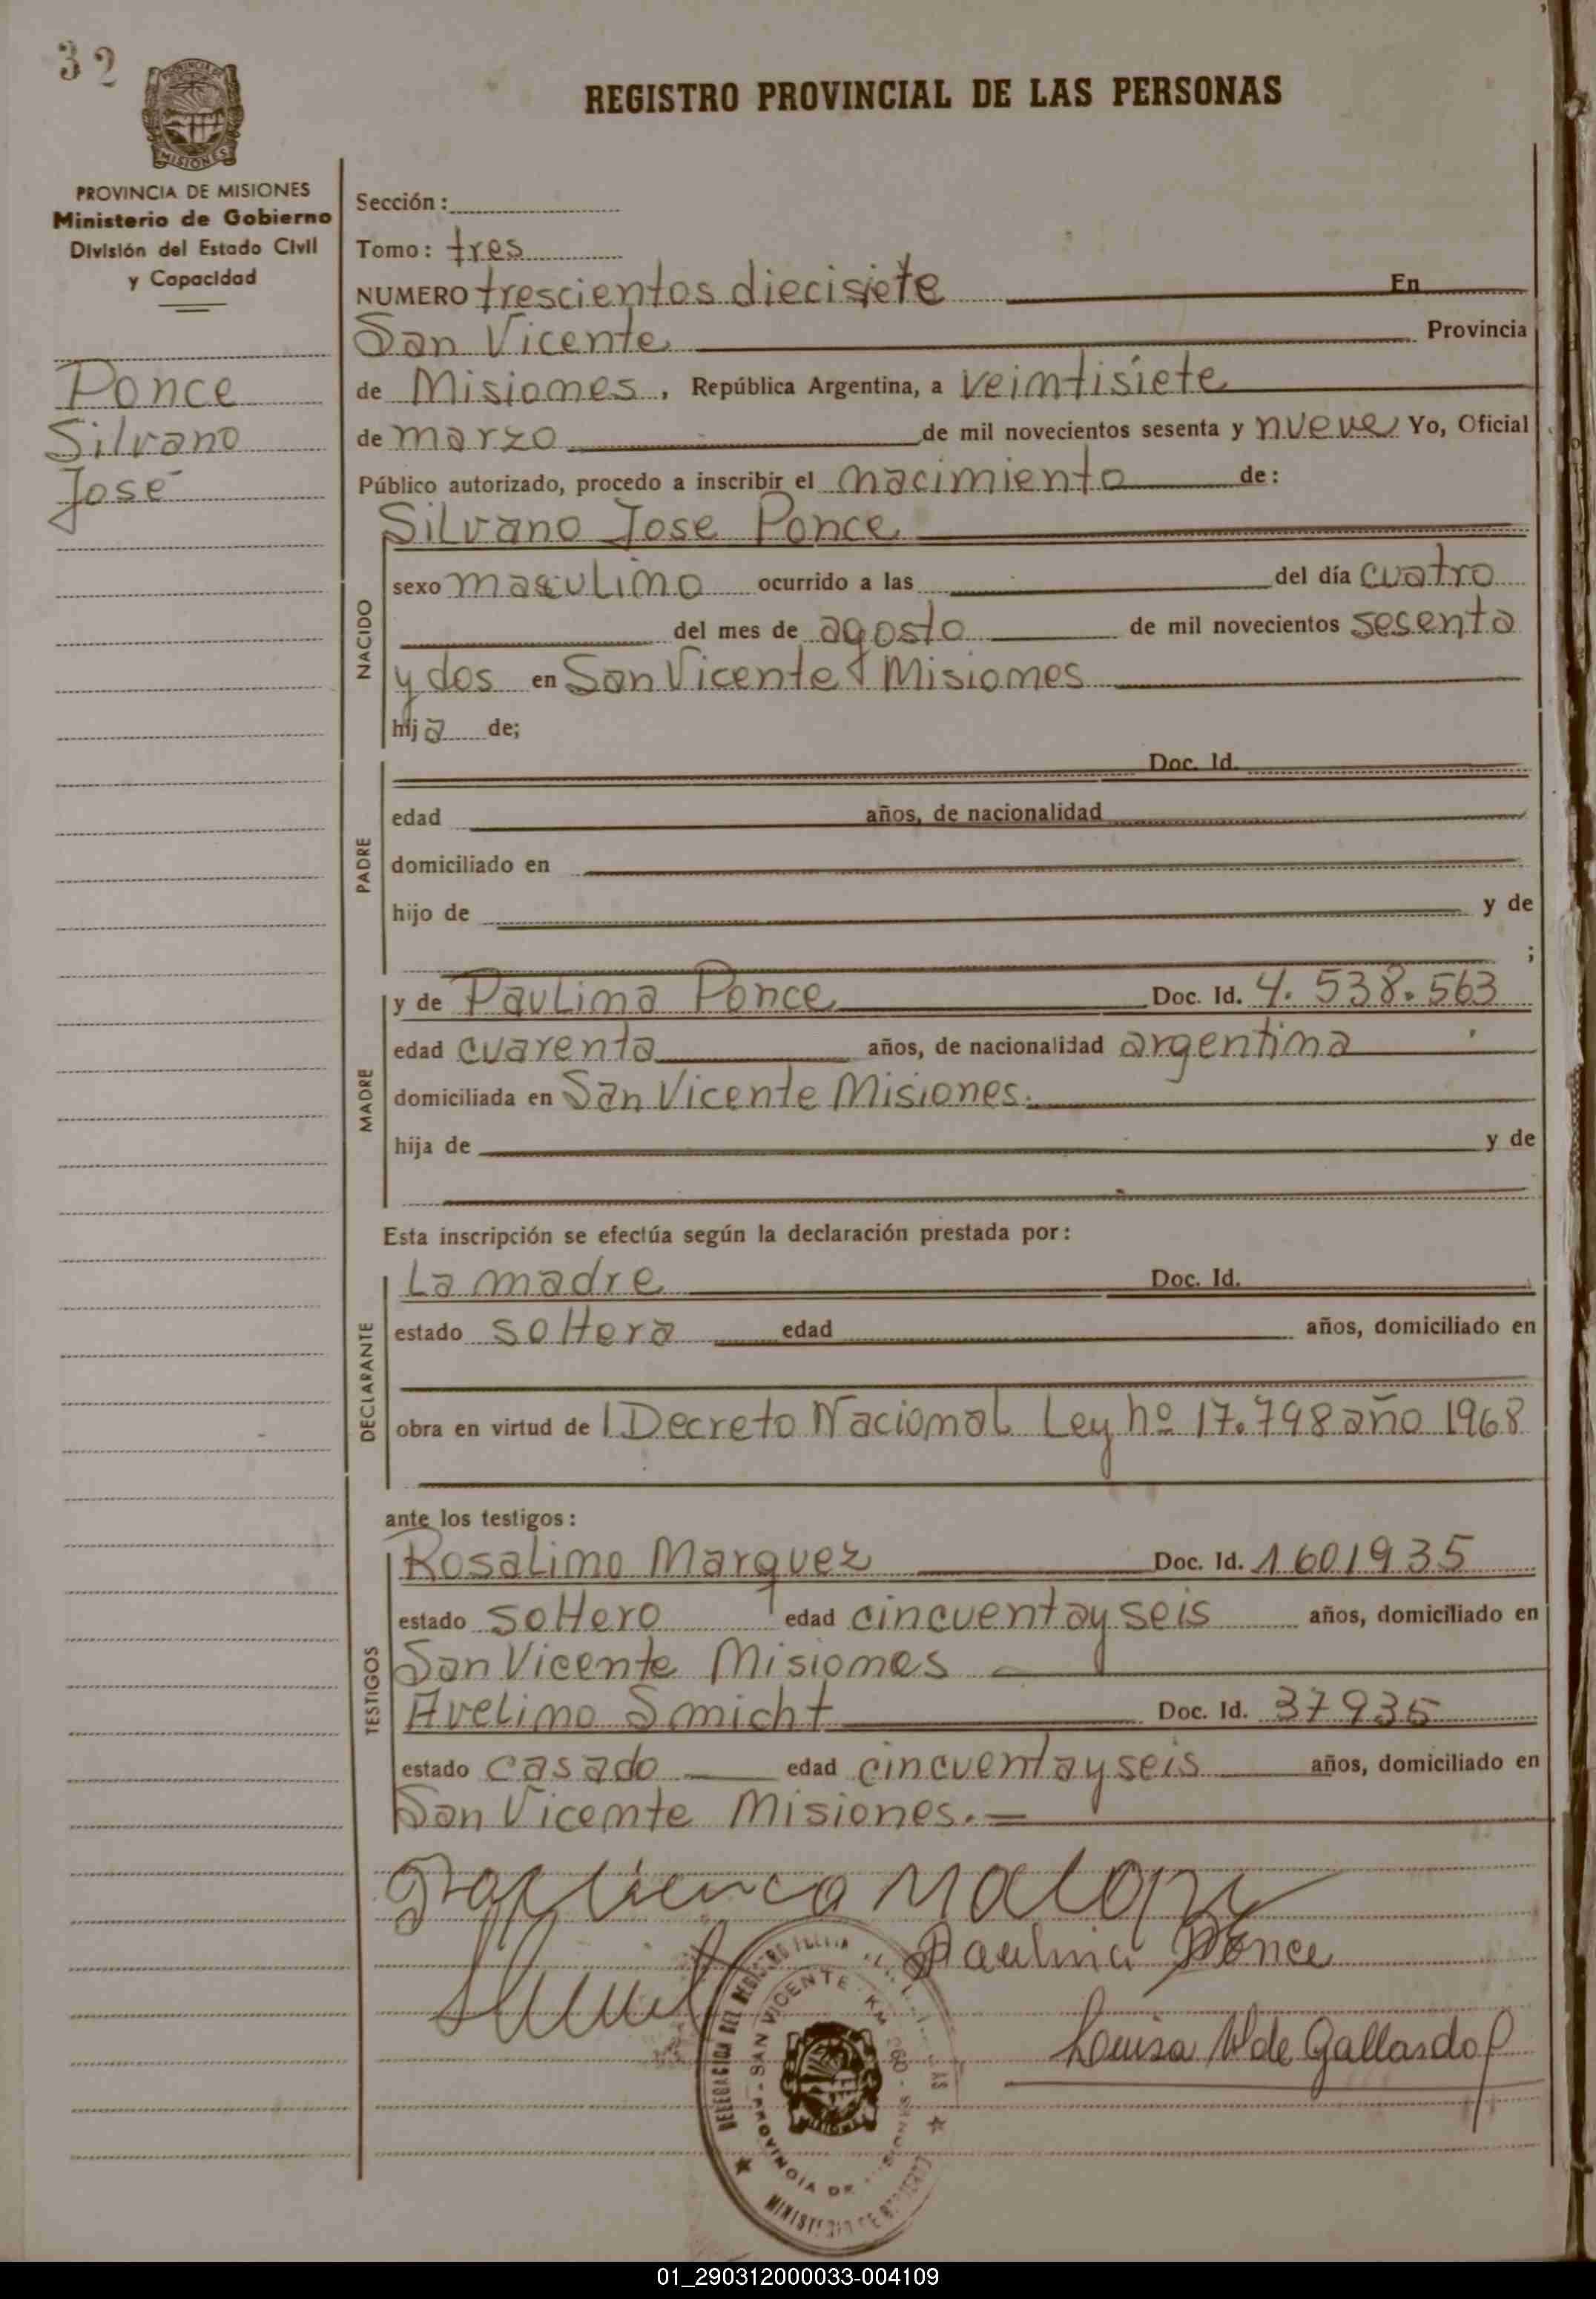 32
PROVINCIA DE MISIONES
Ministerio de Gobierno
División del Estado Civil
y Capacidad
Ponce
Silvano
José
REGISTRO PROVINCIAL DE LAS PERSONAS
Sección:
Tomo: tres
NUMERO trescientos diecisiete En
San Vicente Provincia
de Misiones, República Argentina, a veintisiete
de marzo de mil novecientos sesenta y nueve Yo, Oficial
Público autorizado, procedo a inscribir el nacimiento de:
Silvano Jose Ponce
NACIDO
sexo masculino ocurrido a las del día cuatro
del mes de agosto de mil novecientos sesenta
y dos en San Vicente Misiones
hija de;
PADRE
Doc. Id.
edad años, de nacionalidad
domiciliado en
hijo de y de
;
MADRE
y de Paulina Ponce Doc. Id. 4.538.563
edad cuarenta años, de nacionalidad argentina
domiciliada en San Vicente Misiones.
hija de y de
Esta inscripción se efectúa según la declaración prestada por:
DECLARANTE
La madre Doc. Id.
estado soltera edad años, domiciliado en
obra en virtud de l Decreto Nacional Ley nº 17.798 año 1968
ante los testigos:
TESTIGOS
Rosalino Marquez Doc. Id. 1601935
estado soltero edad cincuenta y seis años, domiciliado en
San Vicente Misiones
Avelino Smicht Doc. Id. 37935
estado casado edad cincuenta y seis años, domiciliado en
San Vicente Misiones.
Paulina Ponce
Louisa W de Gallardo
DELEGACION DEL REGISTRO
SAN VICENTE - KM 260 -
PROVINCIA DE MISIONES
MINISTERIO DE GOBIERNO
01_290312000033-004109